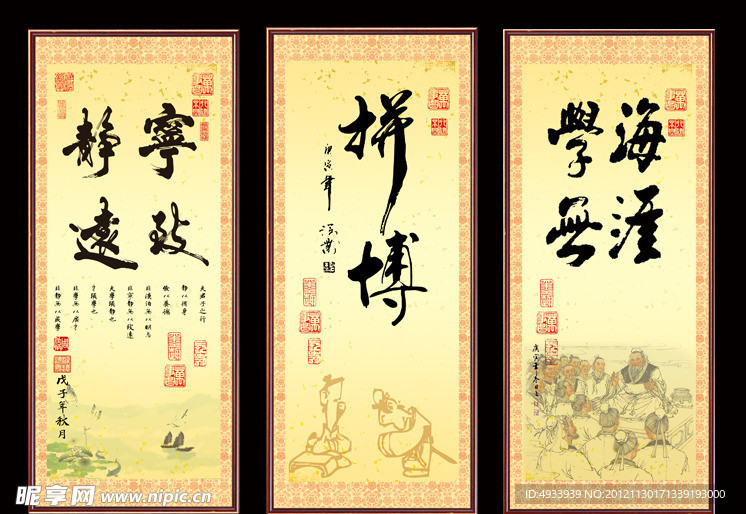 寧靜
致遠
夫君子之行
静以修身
儉以養德
非淡泊無以明志
非寧静無以致遠
夫學須静也
才須學也
非學無以廣才
非静無以成學
戊子年秋月
拼搏
庚寅年
學海
無涯
庚寅年
昵享网 www.nipic.cn
ID:4933939 NO:20121130171339193000